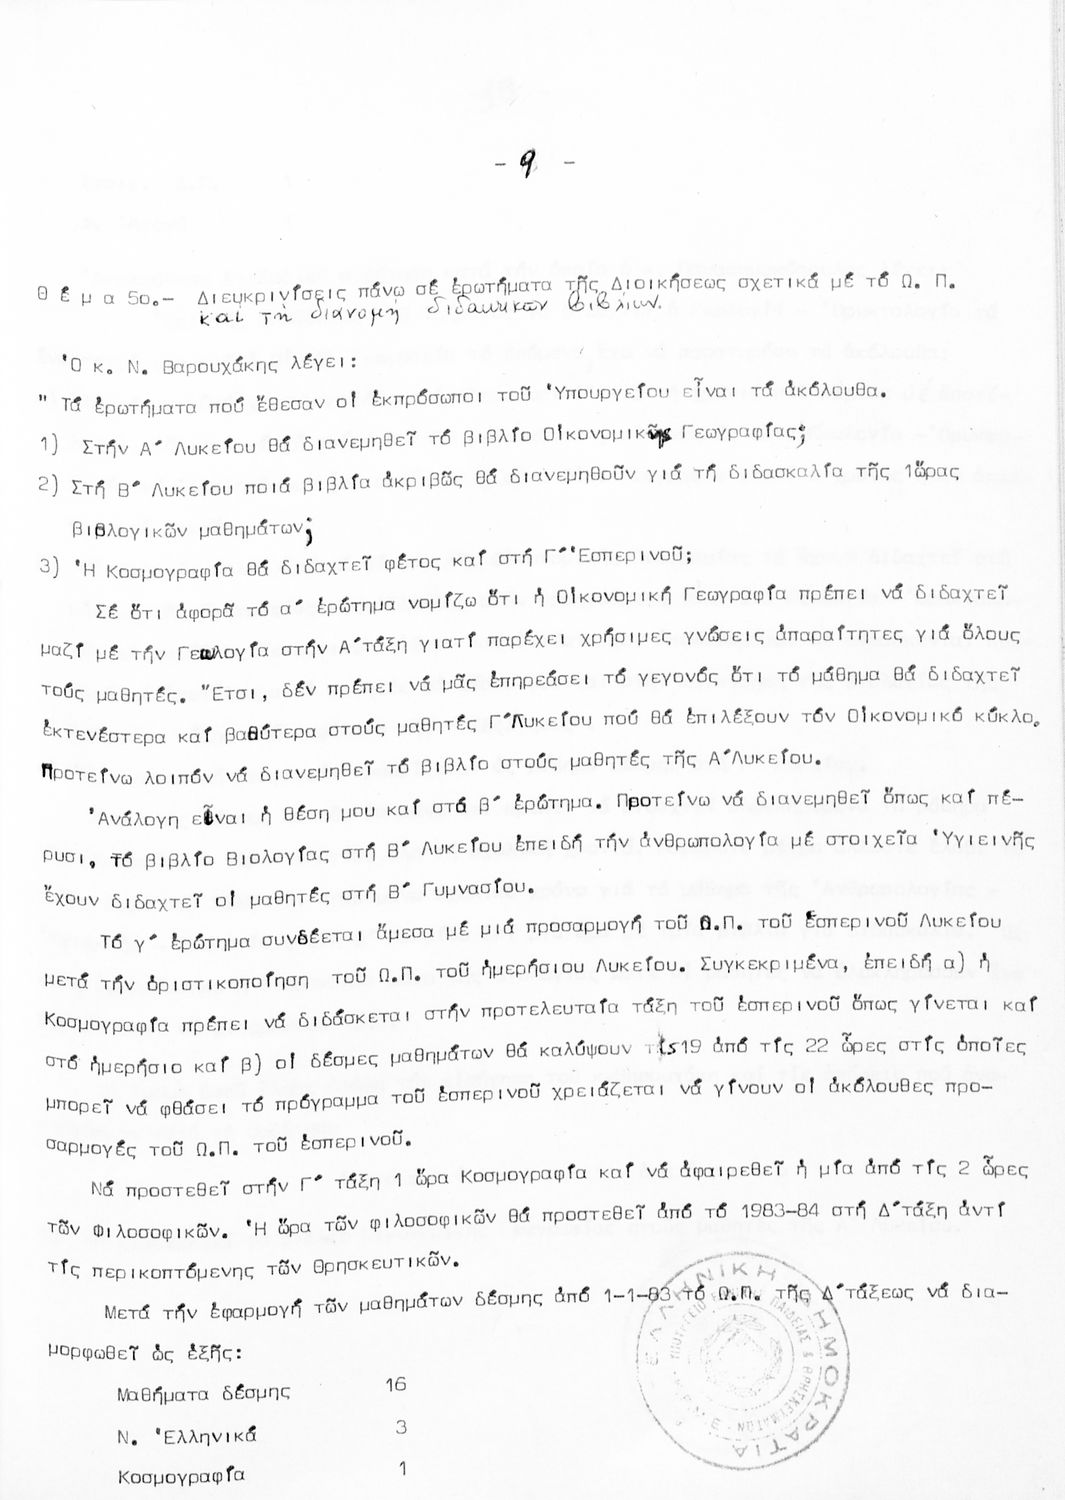 - 9 -
Θ έ μ α 5ο.- Διευκρινίσεις πάνω σέ ἐρωτήματα τῆς Διοικήσεως σχετικά μέ τό Ω. Π.
καί τή διανομή διδακτικῶν βιβλίων.
Ὁ κ. Ν. Βαρουχάκης λέγει:
" Τά ἐρωτήματα πού ἔθεσαν οἱ ἐκπρόσωποι τοῦ Ὑπουργείου εἶναι τά ἀκόλουθα.
1) Στήν Α΄ Λυκείου θά διανεμηθεῖ τό βιβλίο Οἰκονομικῆς Γεωγραφίας;
2) Στή Β΄ Λυκείου ποιά βιβλία ἀκριβῶς θά διανεμηθοῦν γιά τή διδασκαλία τῆς 1ὥρας
βιολογικῶν μαθημάτων;
3) Ἡ Κοσμογραφία θά διδαχτεῖ φέτος καί στή Γ΄Ἑσπερινοῦ;
Σέ ὅτι ἀφορᾶ τό α΄ ἐρώτημα νομίζω ὅτι ἡ Οἰκονομική Γεωγραφία πρέπει νά διδαχτεῖ
μαζί μέ τήν Γεωλογία στήν Α΄τάξη γιατί παρέχει χρήσιμες γνώσεις ἀπαραίτητες γιά ὅλους
τούς μαθητές. Ἔτσι, δέν πρέπει νά μᾶς ἐπηρεάσει τό γεγονός ὅτι τό μάθημα θά διδαχτεῖ
ἐκτενέστερα καί βαθύτερα στούς μαθητές Γ΄Λυκείου πού θά ἐπιλέξουν τόν Οἰκονομικό κύκλο.
Προτείνω λοιπόν νά διανεμηθεῖ τό βιβλίο στούς μαθητές τῆς Α΄Λυκείου.
Ἀνάλογη εἶναι ἡ θέση μου καί στό β΄ ἐρώτημα. Προτείνω νά διανεμηθεῖ ὅπως καί πέ-
ρυσι, τό βιβλίο Βιολογίας στή Β΄ Λυκείου ἐπειδή τήν ἀνθρωπολογία μέ στοιχεῖα Ὑγιεινῆς
ἔχουν διδαχτεῖ οἱ μαθητές στή Β΄ Γυμνασίου.
Τό γ΄ ἐρώτημα συνδέεται ἄμεσα μέ μιά προσαρμογή τοῦ Ω.Π. τοῦ ἑσπερινοῦ Λυκείου
μετά τήν ὁριστικοποίηση τοῦ Ω.Π. τοῦ ἡμερήσιου Λυκείου. Συγκεκριμένα, ἐπειδή α) ἡ
Κοσμογραφία πρέπει νά διδάσκεται στήν προτελευταία τάξη τοῦ ἑσπερινοῦ ὅπως γίνεται καί
στό ἡμερήσιο καί β) οἱ δέσμες μαθημάτων θά καλύψουν τίς 19 ἀπό τίς 22 ὧρες στίς ὁποῖες
μπορεῖ νά φθάσει τό πρόγραμμα τοῦ ἑσπερινοῦ χρειάζεται νά γίνουν οἱ ἀκόλουθες προ-
σαρμογές τοῦ Ω.Π. τοῦ ἑσπερινοῦ.
Νά προστεθεῖ στήν Γ΄ τάξη 1 ὥρα Κοσμογραφία καί νά ἀφαιρεθεῖ ἡ μία ἀπό τίς 2 ὧρες
τῶν Φιλοσοφικῶν. Ἡ ὥρα τῶν φιλοσοφικῶν θά προστεθεῖ ἀπό τό 1983-84 στή Δ΄τάξη ἀντί
τίς περικοπτόμενης τῶν Θρησκευτικῶν.
Μετά τήν ἐφαρμογή τῶν μαθημάτων δέσμης ἀπό 1-1-83 τό Ω.Π. τῆς Δ΄τάξεως νά δια-
μορφωθεῖ ὡς ἑξῆς:
Μαθήματα δέσμης 16
Ν. Ἑλληνικά 3
Κοσμογραφία 1
ΕΛΛΗΝΙΚΗ ΔΗΜΟΚΡΑΤΙΑ